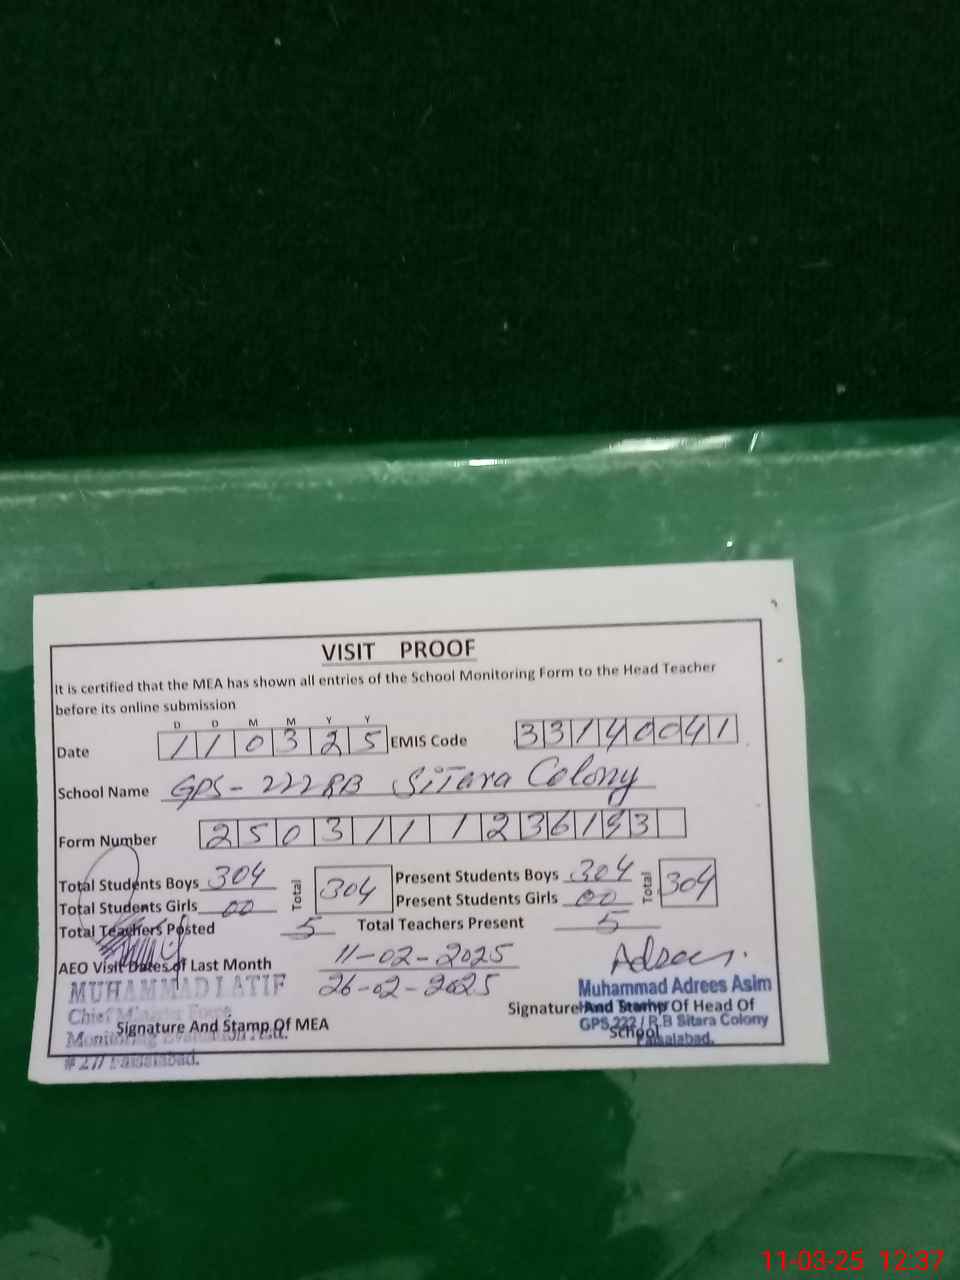 VISIT PROOF
It is certified that the MEA has shown all entries of the School Monitoring Form to the Head Teacher
before its online submission
D D M M Y Y
Date 1 1 0 3 2 5 EMIS Code 3 3 1 4 0 0 4 1
School Name GPS - 222 RB Sitara Colony
Form Number 2 5 0 3 1 1 1 2 3 6 1 3
Total Students Boys 304 Total 304 Present Students Boys 304 Total 304
Total Students Girls 00 Present Students Girls 00
Total Teachers Posted 5 Total Teachers Present 5
AEO Visit Dates of Last Month 11-02-2025
26-02-2025
MUHAMMAD LATIF
Chief Minister
Monitoring
Faisalabad.
Signature And Stamp Of MEA
Muhammad Adrees Asim
Signature And Stamp Of Head Of
GPS 222 / R.B Sitara Colony
School
Faisalabad.
11-03-25 12:37